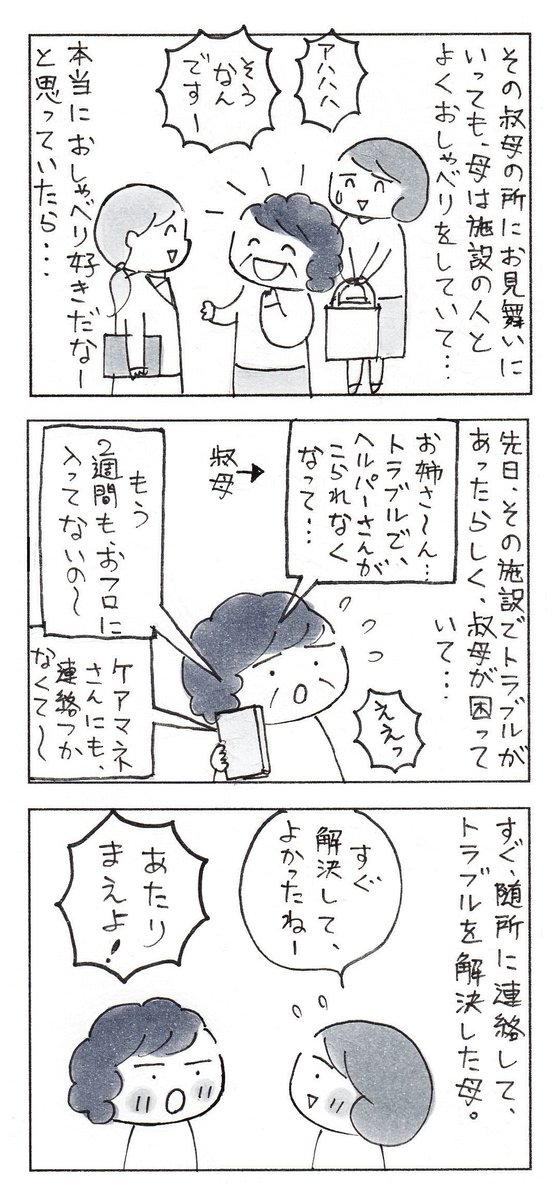 その叔母の所にお見舞いに
いっても、母は施設の人と
よくおしゃべりをしていて…
アハハハ
そう
なん
ですー
本当におしゃべり好きだなー
と思っていたら・・・
先日、その施設でトラブルが
あったらしく、叔母が困って
いて・・・
お姉さ〜ん…
トラブルで、
ヘルパーさんが
こられなく
なって・・・
叔母→
もう
2週間も、おフロに
入ってないの〜
ケアマネ
さんにも、
連絡つか
なくて〜
ええっ
すぐ、随所に連絡して、
トラブルを解決した母。
すぐ
解決して、
よかったねー
あたり
まえよ!